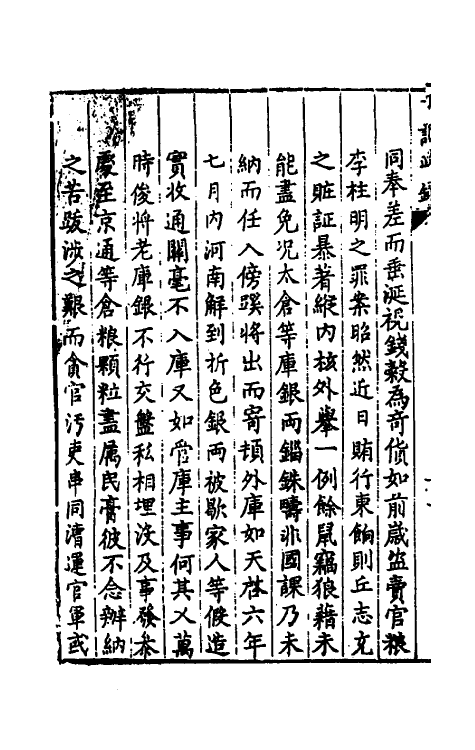 同奉差而垂涎視錢穀為奇貨如前歲盜賣官粮
李柱明之罪案昭然近日賄行東餉則丘志充
之賍証暴著縱内核外舉一例餘鼠竊狼藉未
能盡免况太倉等庫銀兩錙銖疇非國課乃未
納而任入傍蹊將出而寄頓外庫如天啓六年
七月内河南解到折色銀兩被歇家人等假造
實收通關毫不入庫又如管庫主事何其乂萬
時俊將老庫銀不行交盤私相埋没及事發叅
處至京通等倉粮顆粒盡属民膏彼不念辦納
之苦跋涉之艱而貪官污吏串同漕運官軍或